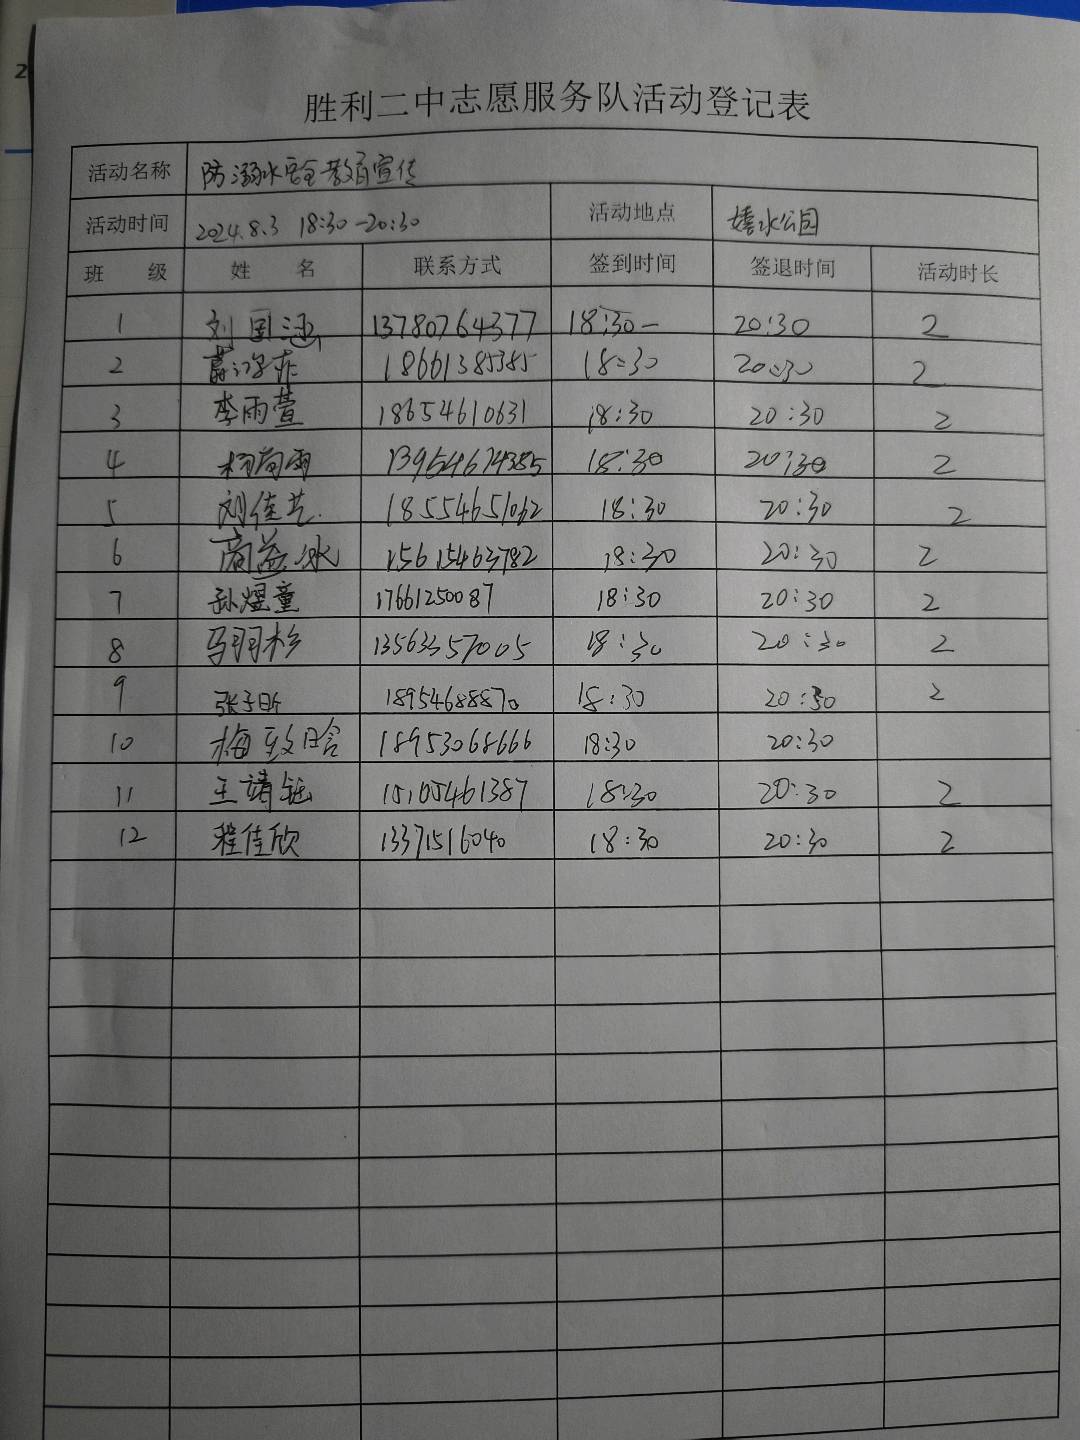 2
胜利二中志愿服务队活动登记表
活动名称 防溺水安全教育宣传
活动时间 2024.8.3 18:30-20:30 活动地点 嬉水公园
班 级 姓 名 联系方式 签到时间 签退时间 活动时长
1 刘国涵 13780764377 18:30- 20:30 2
2 18661385385 18:30 20:30 2
3 李雨萱 18654610631 18:30 20:30 2
4 杨尚雨 13954674385 18:30 20:30 2
5 刘佳艺 18554651062 18:30 20:30 2
6 商益冰 15615463782 18:30 20:30 2
7 孙煜童 17661250087 18:30 20:30 2
8 马羽杉 13563357005 18:30 20:30 2
9 张子昕 18954688870 18:30 20:30 2
10 梅致晗 18953068666 18:30 20:30
11 王靖钰 15105461387 18:30 20:30 2
12 程佳欣 13371516040 18:30 20:30 2